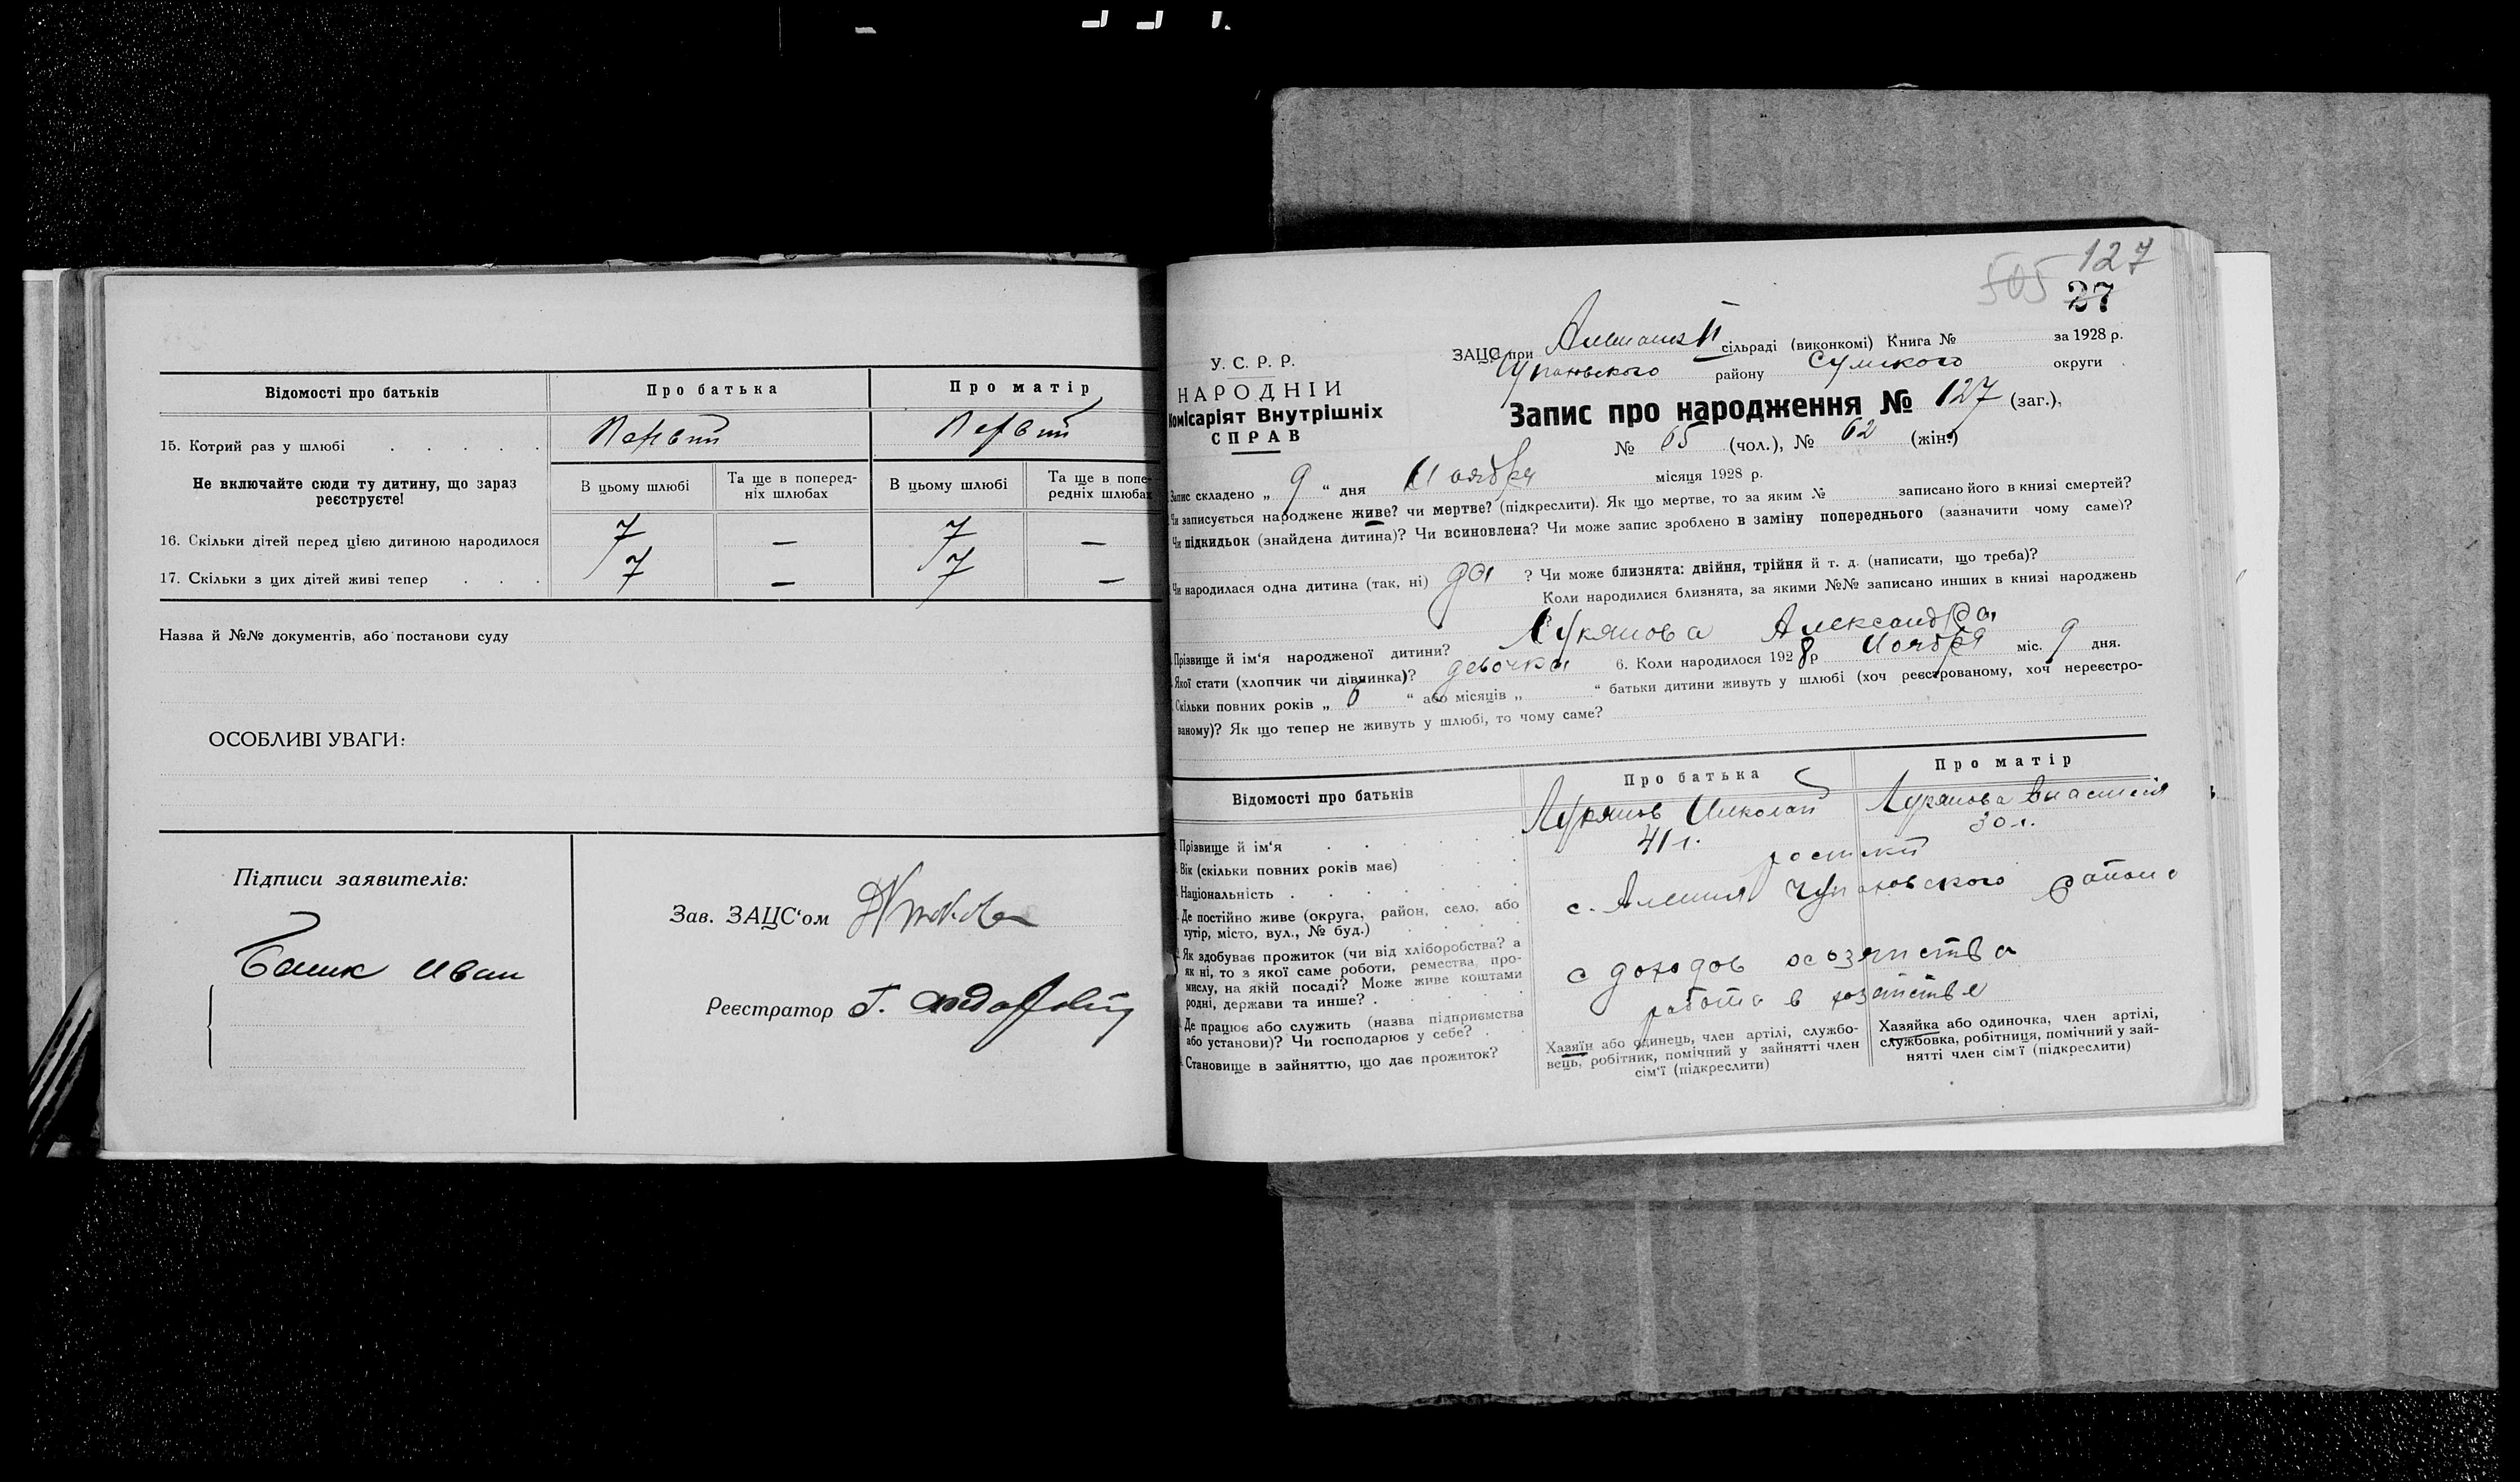 Відомості про батьків
Про батька
Про матір
15. Котрий раз у шлюбі . . . . .
Первый
Первый
Не включайте сюди ту дитину, що зараз
реєструєте!
В цьому шлюбі
Та ще в поперед-
ніх шлюбах
В цьому шлюбі
Та ще в попе-
редніх шлюбах
16. Скільки дітей перед цією дитиною народилося
7 — 7 —
17. Скільки з цих дітей живі тепер . . .
7 — 7 —
Назва й №№ документів, або постанови суду
ОСОБЛИВІ УВАГИ:
Підписи заявителів:
Иван
Зав. ЗАЦС‘ом
Реєстратор
127
505
27
У. С. Р. Р.
НАРОДНІЙ
Комісаріят Внутрішніх
СПРАВ
ЗАЦС при II сільраді (виконкомі) Книга № за 1928 р.
району Сумского округи
Запис про народження № 127 (заг.),
№ 65 (чол.), № 62 (жін.)
Запис складено „ 9 “ дня Ноября місяця 1928 р.
Чи записується народжене живе? чи мертве? (підкреслити). Як що мертве, то за яким № записано його в книзі смертей?
Чи підкидьок (знайдена дитина)? Чи всиновлена? Чи може запис зроблено в заміну попереднього (зазначити чому саме)?
Чи народилася одна дитина (так, ні) да ? Чи може близнята: двійня, трійня й т. д. (написати, що треба)?
Коли народилися близнята, за якими №№ записано инших в книзі народжень
Прізвище й ім‘я народженої дитини? Лукянова Александра
Якої стати (хлопчик чи дівчинка)? девочка 6. Коли народилось 1928 р Ноября міс. 9 дня.
Скільки повних років „ “ або місяців „ “ батьки дитини живуть у шлюбі (хоч реєстрованому, хоч нереєстро-
ваному)? Як що тепер не живуть у шлюбі, то чому саме?
Відомості про батьків
Про батька
Про матір
Прізвище й ім‘я
Лукянов Николай
Лукянова
Вік (скільки повних років має)
41 г.
30 г.
Національність
Де постійно живе (округа, район, село, або
хутір, місто, вул., № буд.)
с. района
Як здобуває прожиток (чи від хліборобства? а
як ні, то з якої саме роботи, ремества, про-
мислу, на якій посаді? Може живе коштами
родні, держави та инше?
с доходов хозяиства
Де працює або служить (назва підприємства
або установи)? Чи господарює у себе?
работа в хозяистве
Становище в зайняттю, що дає прожиток?
Хазяїн або одинець, член артілі, службо-
вець, робітник, помічний у зайнятті член
сім‘ї (підкреслити)
Хазяйка або одиночка, член артілі,
службовка, робітниця, помічний у зай-
нятті член сім‘ї (підкреслити)